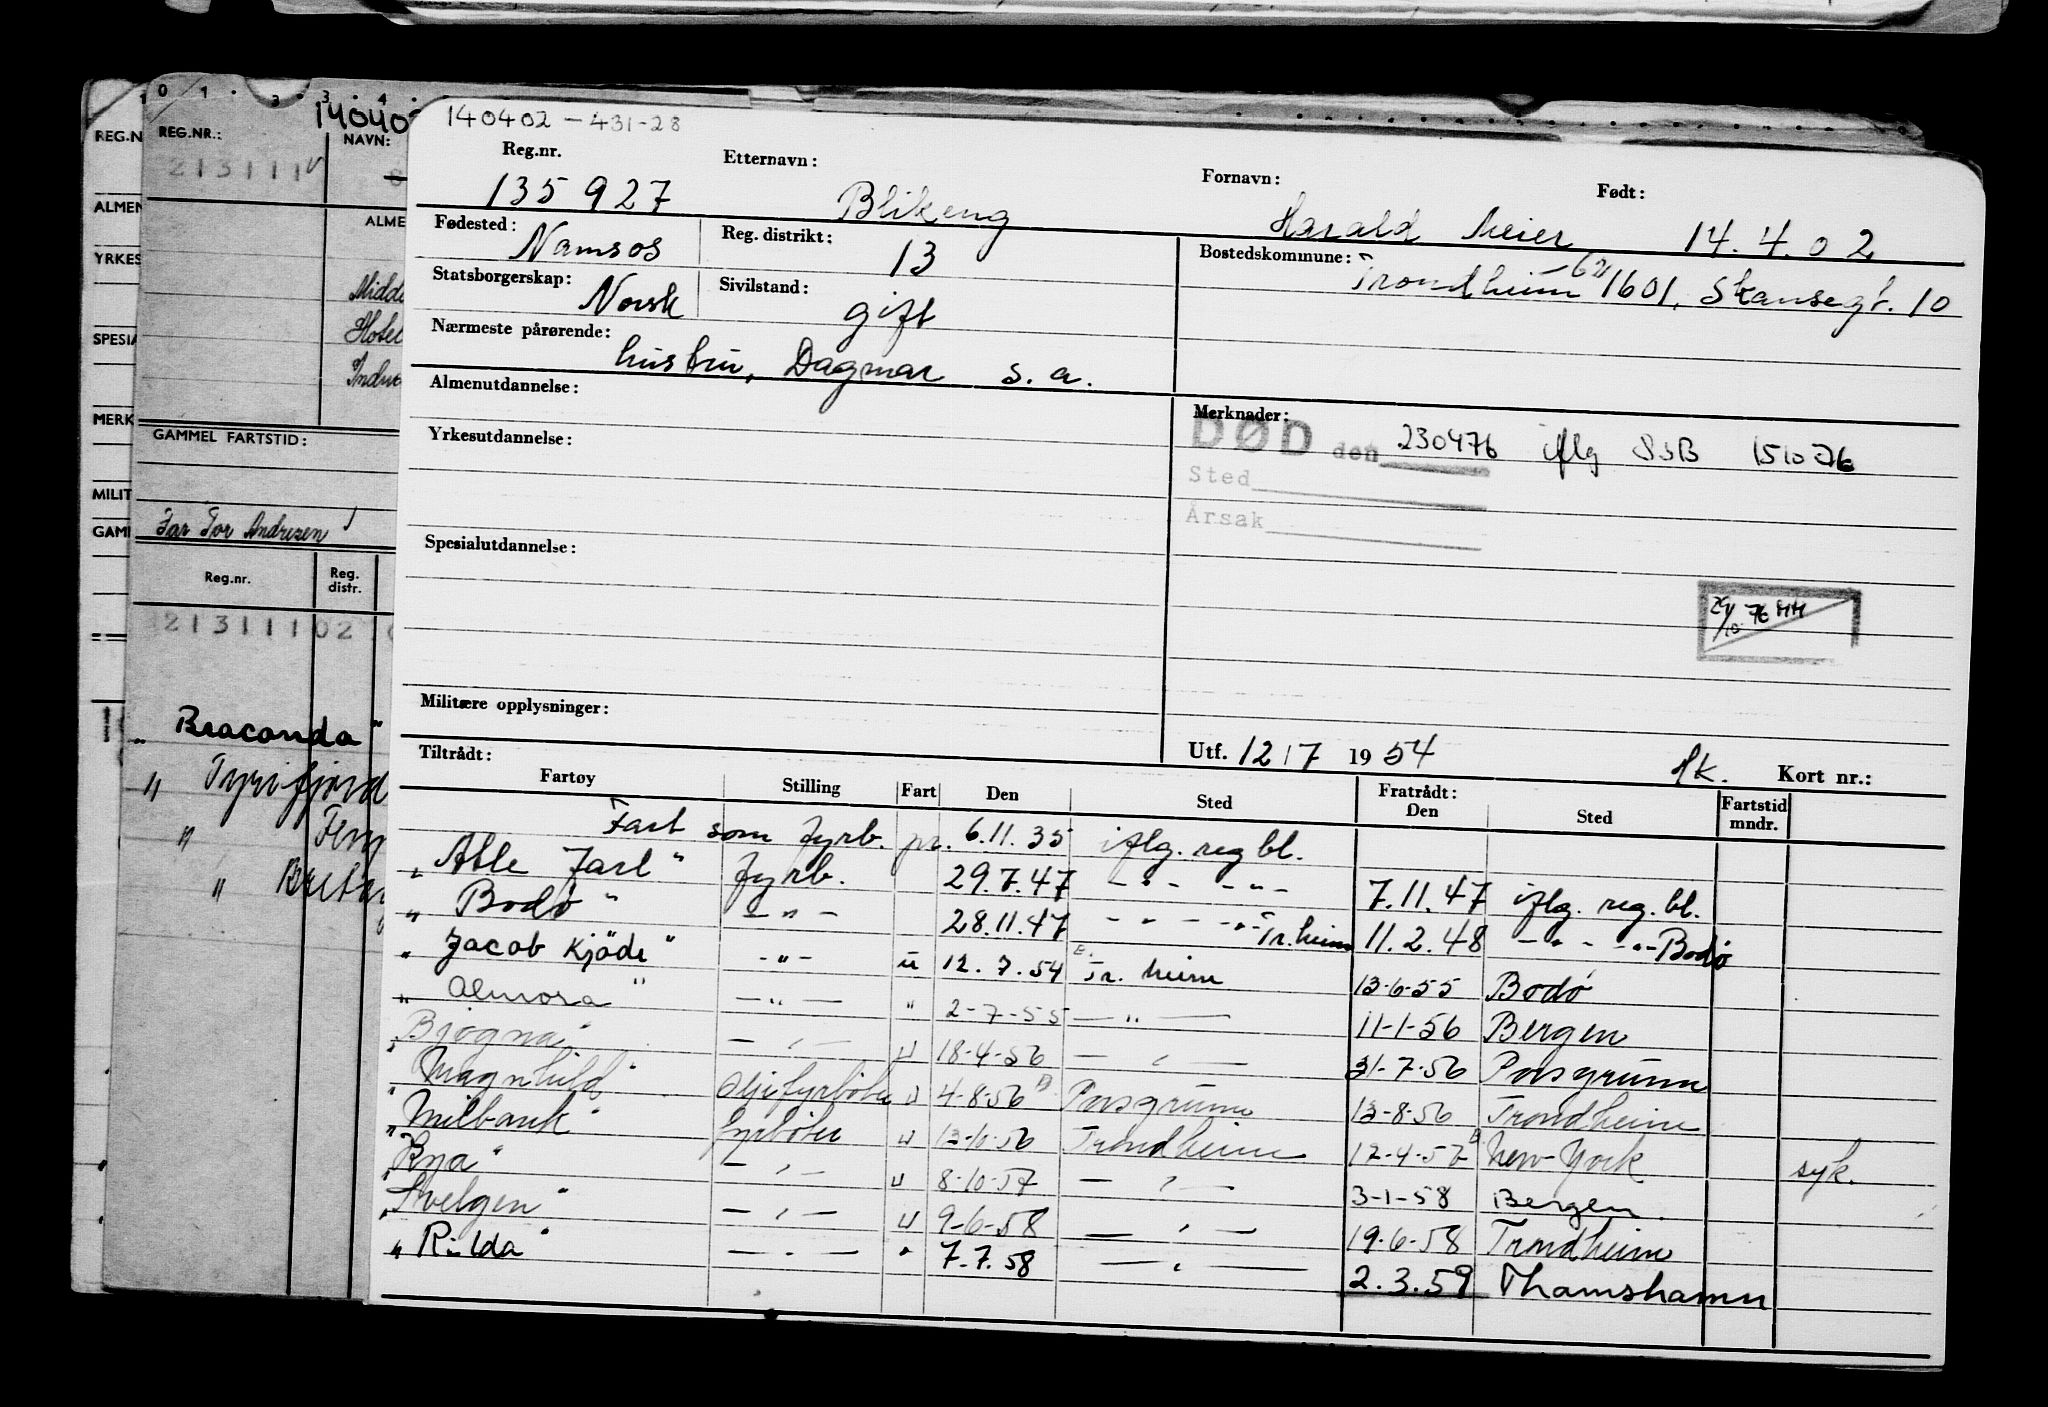 0 1 . 3 . 3 . 4 .
REG.N
REG.NR.:
NAVN:
213111
ALMEN
ALME
YRKES
Midde
Hotel
SPESIA
Indu
MERK
GAMMEL FARTSTID:
MILIT
GAM
Far Tor Andresen
Reg.nr.
Reg. distr.
21311102
" Braconda "
" Tyrifjord
"
"
140402 - 431-28
Reg.nr. Etternavn: Fornavn: Født:
135 927 Blikeng Harald Meier 14.4.02
Fødested: Namsos Reg. distrikt: 13 Bostedskommune: Trondheim 1601, Skansegt. 10
Statsborgerskap: Norsk Sivilstand: gift
Nærmeste pårørende: hustru, Dagmar s.a.
Almenutdannelse:
Merknader:
Yrkesutdannelse:
DØD den 230476 iflg SSB 151076
Sted
Årsak
Spesialutdannelse:
29/10 76 MM
Militære opplysninger:
Utf. 12/7 1954 Kort nr.:
Tiltrådt:
Fartøy Stilling Fart Den Sted Fratrådt: Den Sted Fartstid mndr.
Fart som fyrb. pr. 6.11.35 iflg. reg bl.
" Atle Jarl " fyrb. 29.7.47 - " - - " - 7.11.47 iflg. reg. bl.
" Bodø " - " - 28.11.47 - " - - " - Tr.heim 11.2.48 - " - - " - Bodø
" Jacob Kjöde " - " - u 12.7.54 Tr. heim 13-6-55 Bodø
" Almora " - " - " 2-7-55 - " - 11-1-56 Bergen
" Bjøgna " - " - u 18-4-56 - " - 31-7-56 Porsgrunn
" Magnhild " oljefyrbøter u 4-8-56 Porsgrunn 13-8-56 Trondheim
" Milbank " fyrbøter u 13-10-56 Trondheim 12-4-57 New York syk.
" Rya " - " - u 8-10-57 - " - 3-1-58 Bergen
" Svelgen " - " - u 9-6-58 - " - 19-6-58 Trondheim
" Rilda " - " - " 7.7.58 - " - 2.3.59 Thamshamn